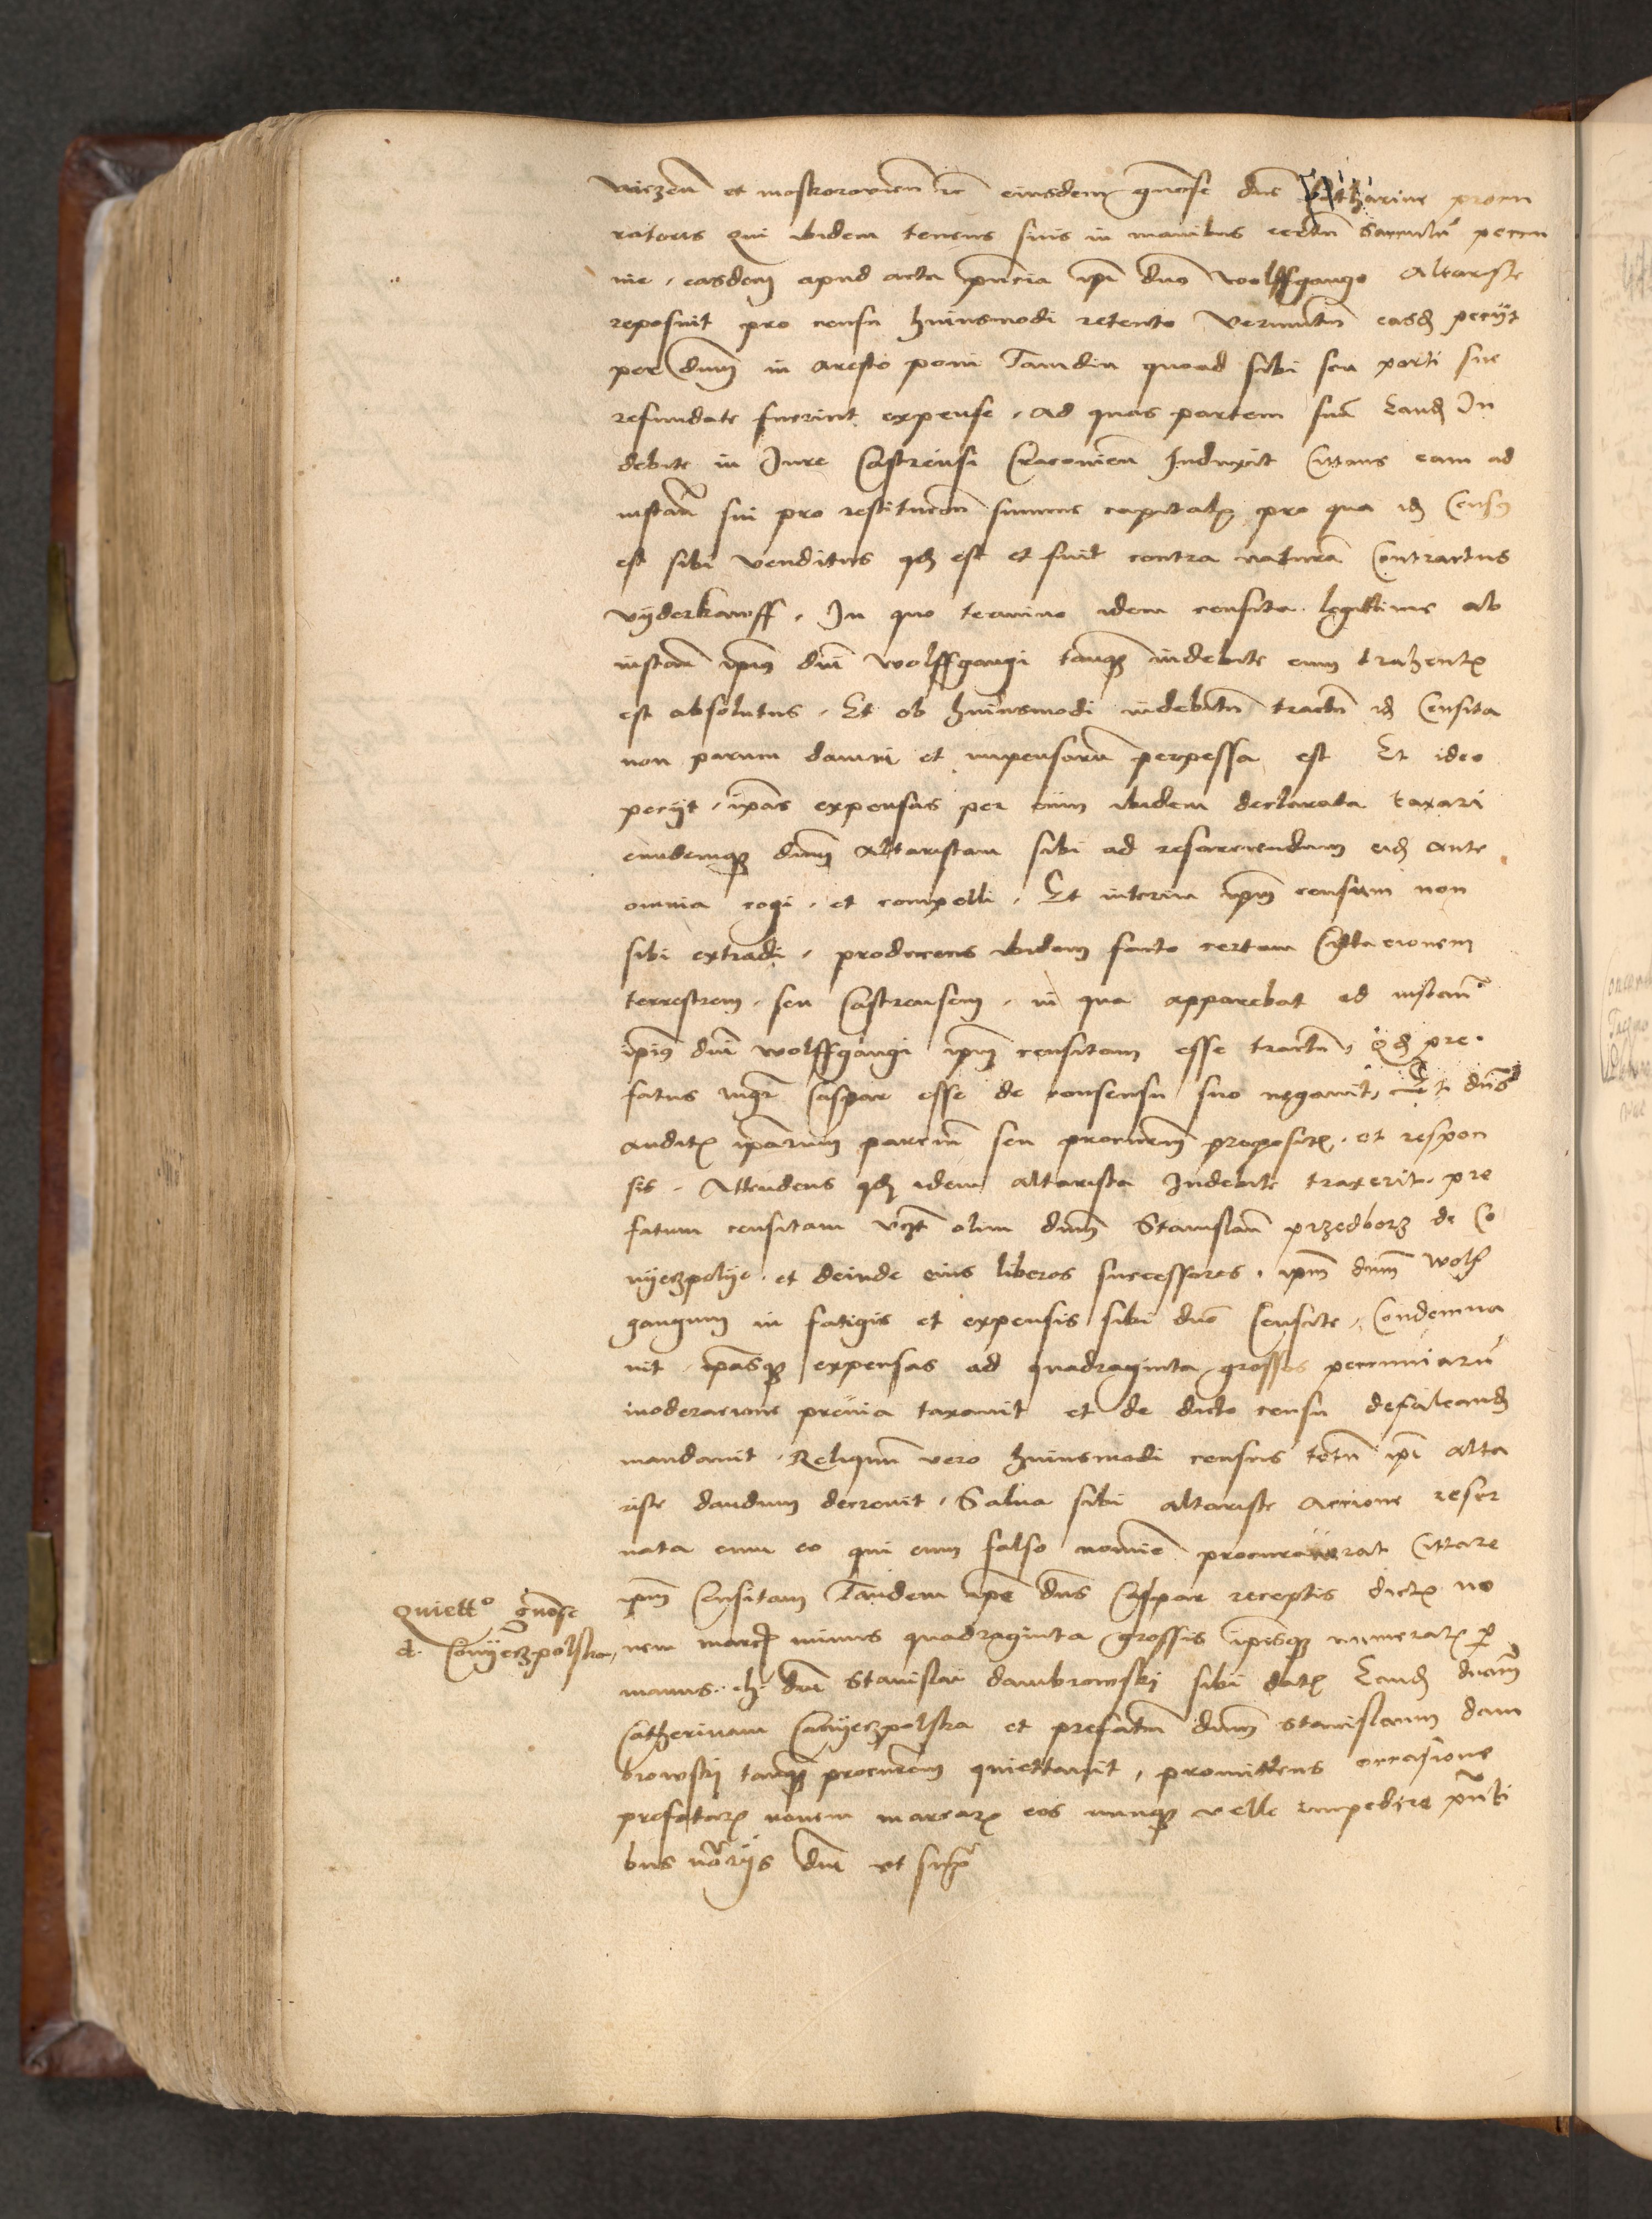 wiczen et moskorowien etc eiusdem gnose dne Catharine procu
ratoris Qui ibidem tenens suis in manibus certum sacculum pecu
nie, easdem apud acta pntia ipi dno Wolffgango Altariste
reposuit pro censu huiusmodi retento Verumtn easdem peciit
per dnum in aresto poni Tamdiu quoad sibi seu parti sue
refundate fuerint expense, ad quas partem suam eandem In
debite in Jure Castrensi Cracovien Induxit Cittans eam ad
instam sui pro restitucone summe capitalis pro qua idem Census
est sibi venditus quod est et fuit contra naturam Contractus
vyderkawff, In quo termino idem censita legittime ab
instam ipius dni Wolffgangi tanquam indebite eum trahentis
est absolutus, Et ob huiusmodi indebitum tractum idem Censita
non parum damni et impensarum perpessa est Et ideo
peciit, ipas expensas per eum ibidem declarata taxari
eundemque dnum Altaristam sibi ad resarciendum eidem ante
omnia cogi, et compelli, Et interim ipm censum non
sibi extradi, producens ibidem facto certam Cittacionem
terrestrem, seu Castrensem, in qua apparebat ad instam
ipius dni Wolffgangi ipm censitam esse tractum, Quod pre
fatus mgr Caspar esse de consensu suo negavit, Et dns
auditis iparum parcium seu procurem propositis, et respon
sis, Attendens quod idem altarista Indebite traxerit pre
fatum censitam vizt olim dnum Stanislaum przedborz de Co
nyeczpolye, et deinde eius liberos successores, ipm dnum Wolf
gangum in fatigis et expensis sibi dno Censite, Condemna
vit, ipasque expensas ad quadraginta grossos pecuniarum
moderacione previa taxavit et de dicto censu defalcand
mandavit, Reliquum vero huiusmodi census totum ipi alta
riste dandum decrevit, Salva sibi altariste Accione reser
vata cum eo qui eum falso nomine procuraverat Cittare
ipm Censitam Tandem ipe dns Caspar receptis dictis no
Quiettº gnose
d. Conyeczpolska,
vem marcis minus quadraginta grossis ipisque numeratis per
manus dni Stanislai dambrowskj sibi datis Eand dnam
Catherinam Conyeczpolska et prefatum dnum Stanislaum dam
browskj tanquam procurem quiettavit, promittens occasione
prefatarum novem marcarum eos nunquam velle impedire pnti
bus notrijs dni ut supra